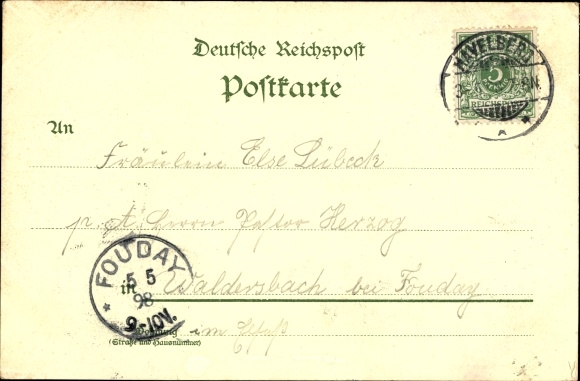 Deutsche Reichspost
Postkarte
HAVELBERG
5
REICHSPOST
An
Fräulein Else Lübeck
p. A. Herrn Pastor Herzog
FOUDAY
5 5
98
9-10V.
in Waldersbach bei Fouday
im Elsaß
Wohnung
(Straße und Hausnummer)